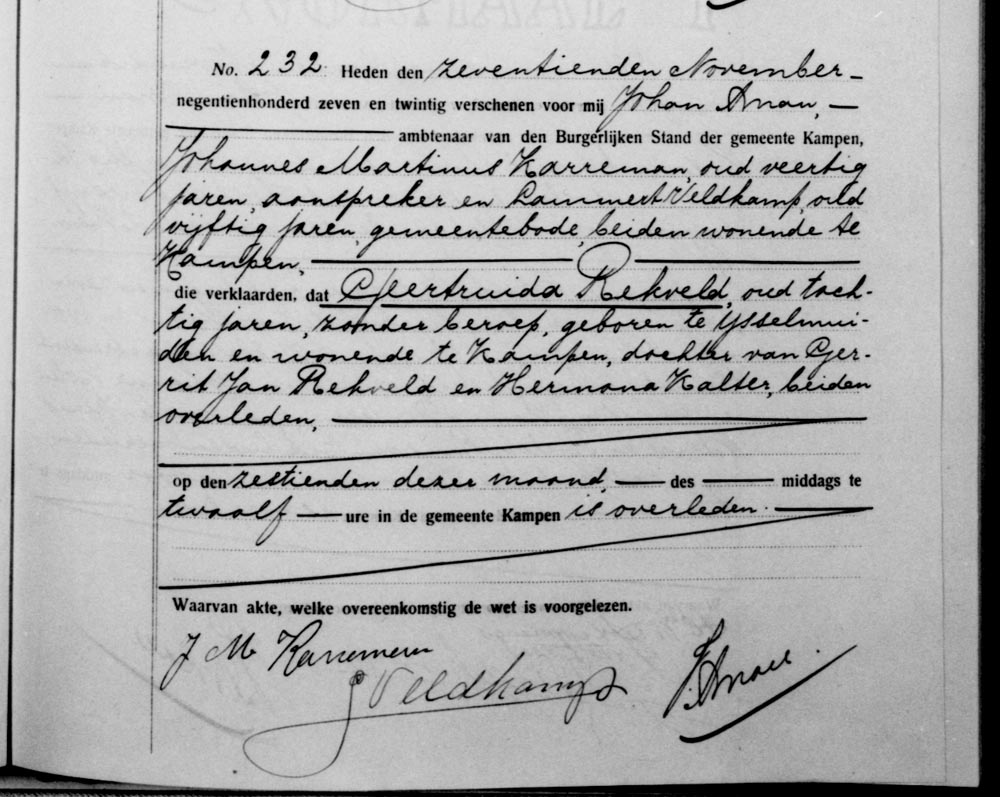 No. 232 Heden den zeventienden November
negentienhonderd zeven en twintig verschenen voor mij Johan Anou,
ambtenaar van den Burgerlijken Stand der gemeente Kampen,
Johannes Martinus Karreman, oud veertig
jaren, aanspreker en Lammert Veldkamp, oud
vijftig jaren, gemeentebode, beiden wonende te
Kampen,
die verklaarden, dat Geertruida Rekveld, oud tach-
tig jaren, zonder beroep, geboren te IJsselmui-
den en wonende te Kampen, dochter van Ger-
rit Jan Rekveld en Hermona Kalter, beiden
overleden,
op den zestienden dezer maand, des middags te
twaalf ure in de gemeente Kampen is overleden.
Waarvan akte, welke overeenkomstig de wet is voorgelezen.
J M Karreman
Veldkamp